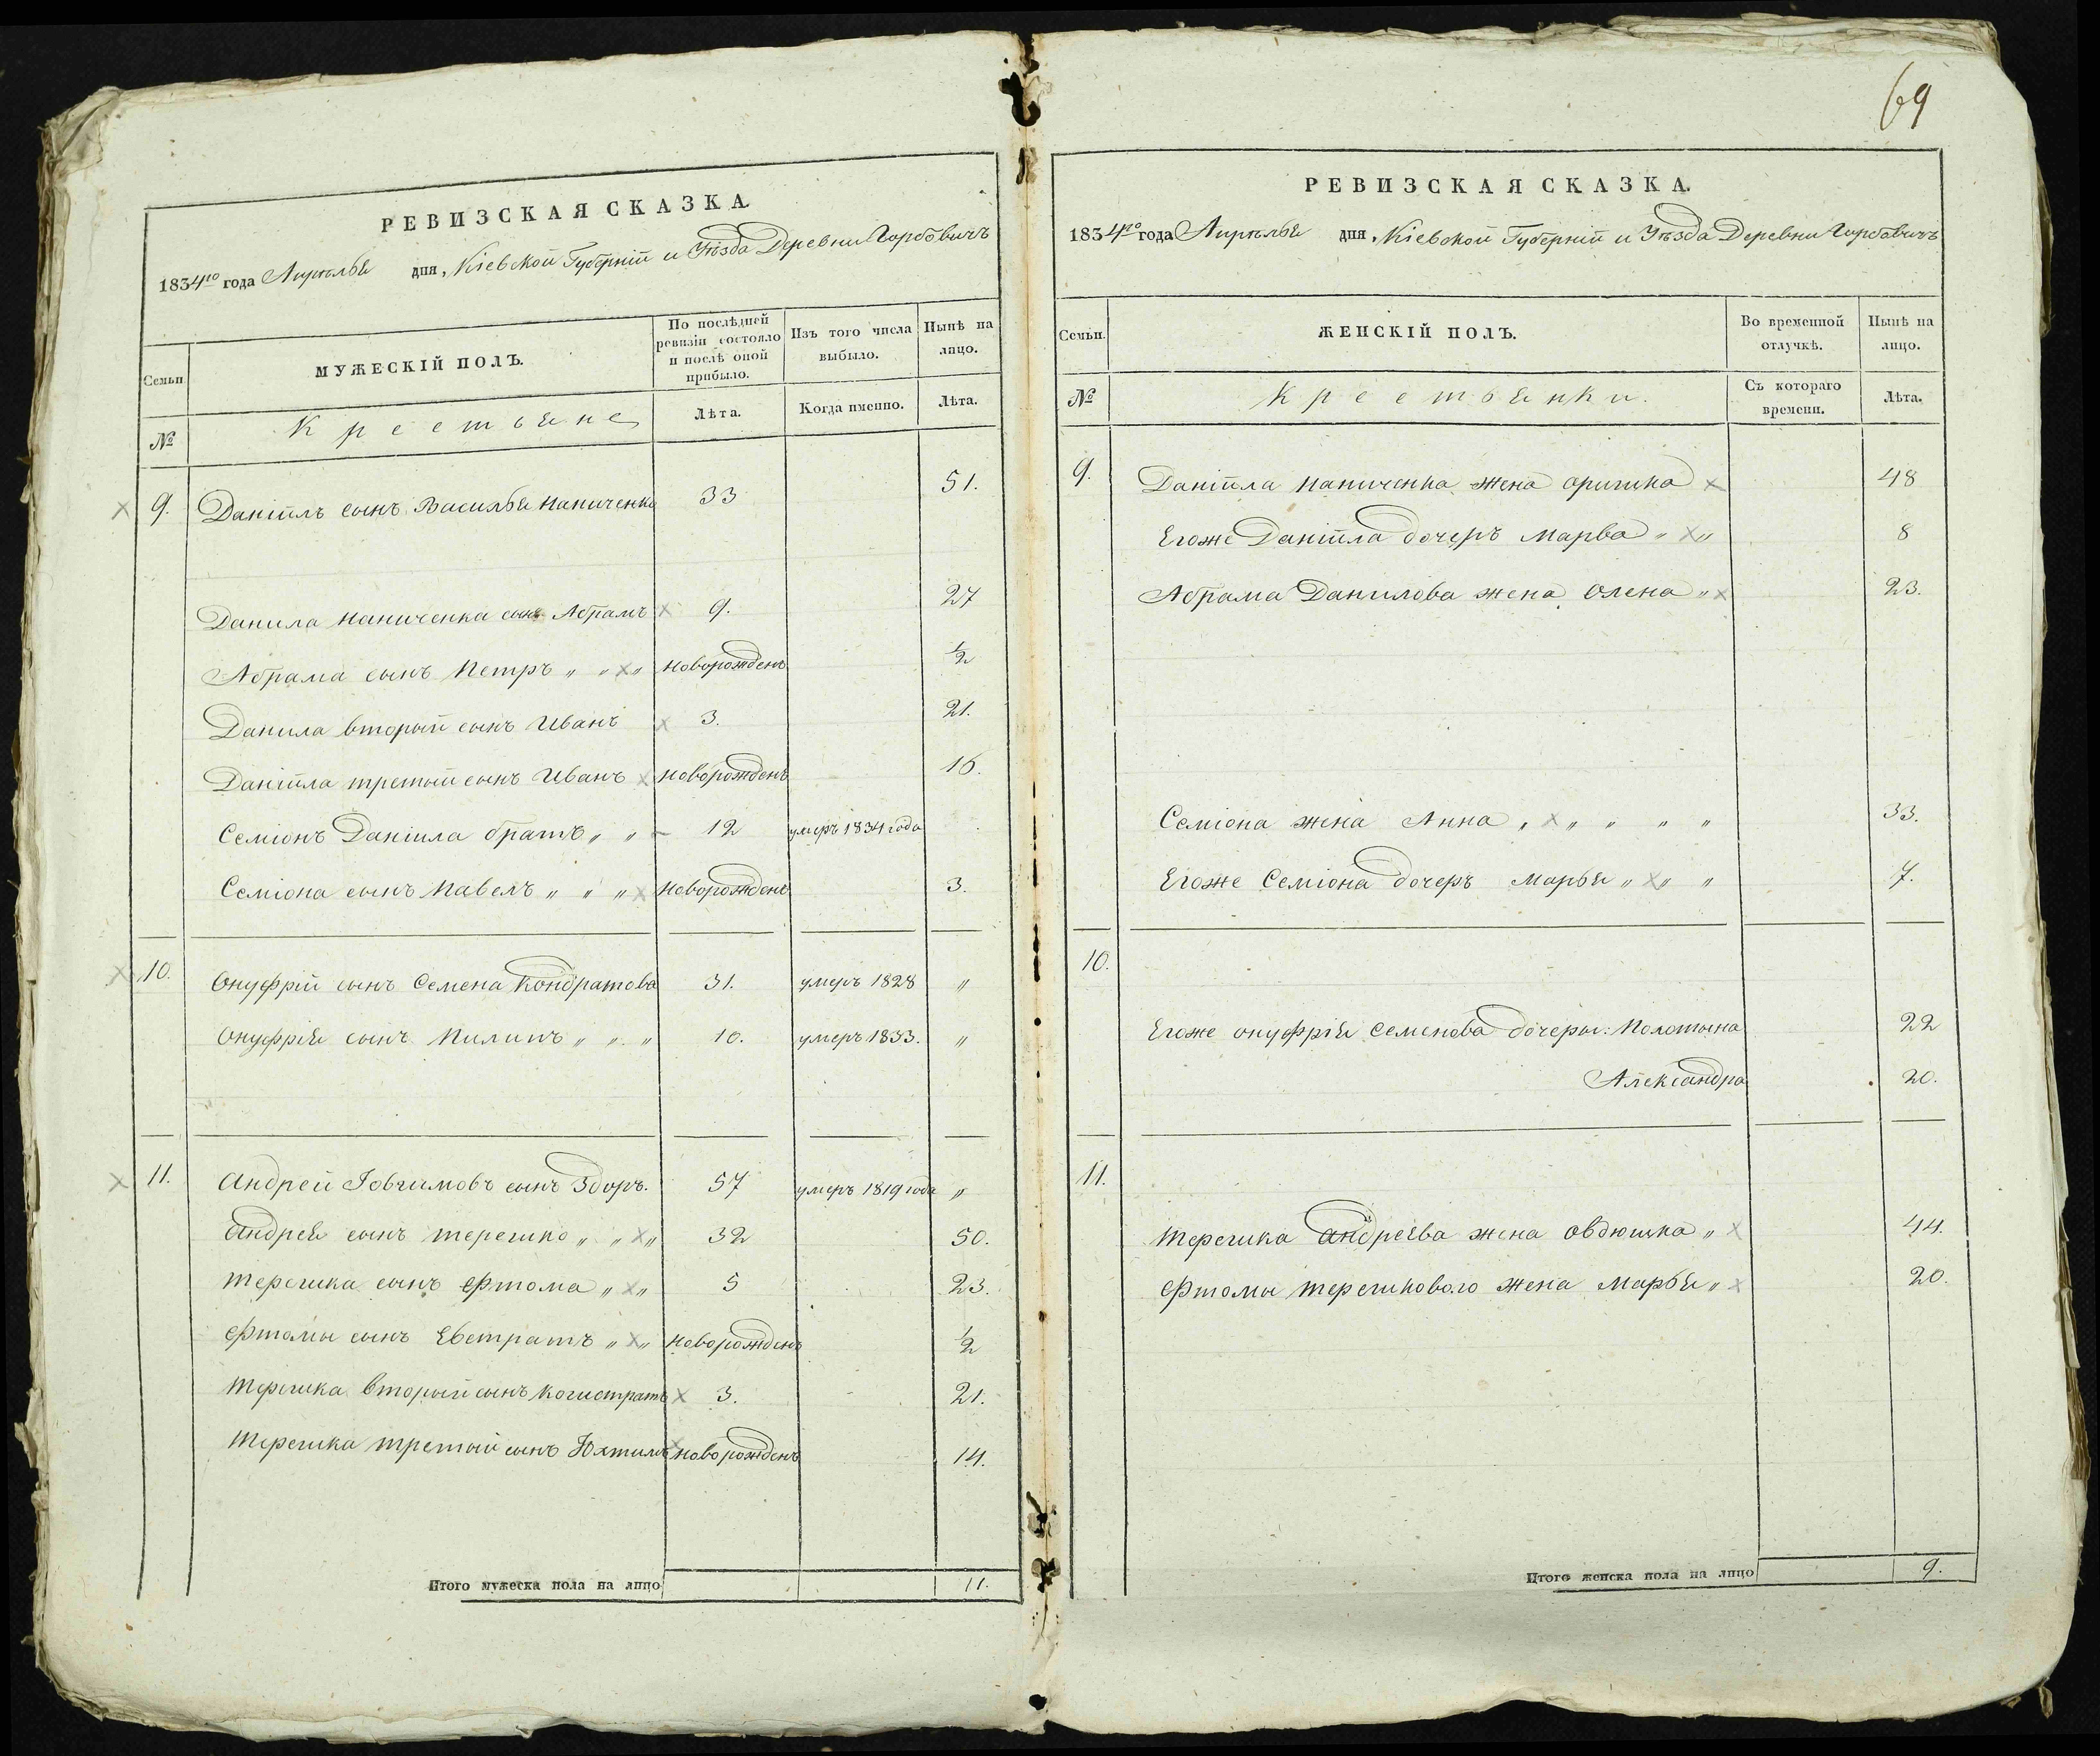 РЕВИЗСКАЯ СКАЗКА
1834го года Апрѣлья дня, Кіевской Губерній и Уѣзда Деревни Горбовичъ
Семьи
МУЖЕСКІЙ ПОЛЪ.
По послѣдней ревизіи состояло и послѣ оной прибыло.
Изъ того числа выбыло.
Нынѣ на лицо.
№
Крестьяне
Лѣта.
Когда именно.
Лѣта.
9. Даніилъ сынъ Василья Паниченко 33 51.
Данила Паниченка сынъ Абрамъ 9. 27
Абрама сынъ Петръ „ „ „ новорожденъ ½
Данила вторый сынъ Иванъ 3. 21.
Даніила третый сынъ Иванъ новорожденъ 16.
Семіонъ Даніила братъ „ „ 12 умеръ 1834 года
Семіона сынъ Павелъ „ „ „ новорожденъ 3.
10. Онуфрій сынъ Семена Кондратова 31. умеръ 1828 „
Онуфрія сынъ Пилипъ „ „ „ 10. умеръ 1833. „
11. Андрей Іовхимовъ сынъ Здоръ. 57 умеръ 1819 года „
Андрея сынъ Терешко „ „ „ 32 50.
Терешка сынъ Єфтома „ „ 5 23.
Єфтомы сынъ Евстратъ „ „ новорожденъ ½
Терешка вторый сынъ 3. 21.
Терешка третый сынъ новорожденъ 14.
Итого мужеска пола на лицо 11.
69
РЕВИЗСКАЯ СКАЗКА.
1834го года Апрѣлья дня, Кіевской Губерній и Уѣзда Деревни Горбовичъ
Семьи.
ЖЕНСКІЙ ПОЛЪ.
Во временной отлучкѣ.
Нынѣ на лицо.
№
Крестьянки.
Съ котораго времени.
Лѣта.
9. Даніила Паниченка жена Оришка 48
Егоже Даніила дочеръ Марва „ „ 8
Абрама Данилова жена Олена „ 23.
Семіона жена Анна „ „ „ „ „ 33.
Егоже Семіона дочеръ Марья „ „ „ 7.
10.
Егоже Онуфрія Семенова дочеры: Полотына 22
Александра 20.
11.
Терешка Андреева жена Овдюшка „ 44.
Єфтомы Терешкового жена Марья „ 20.
Итого женска пола на лицо 9.